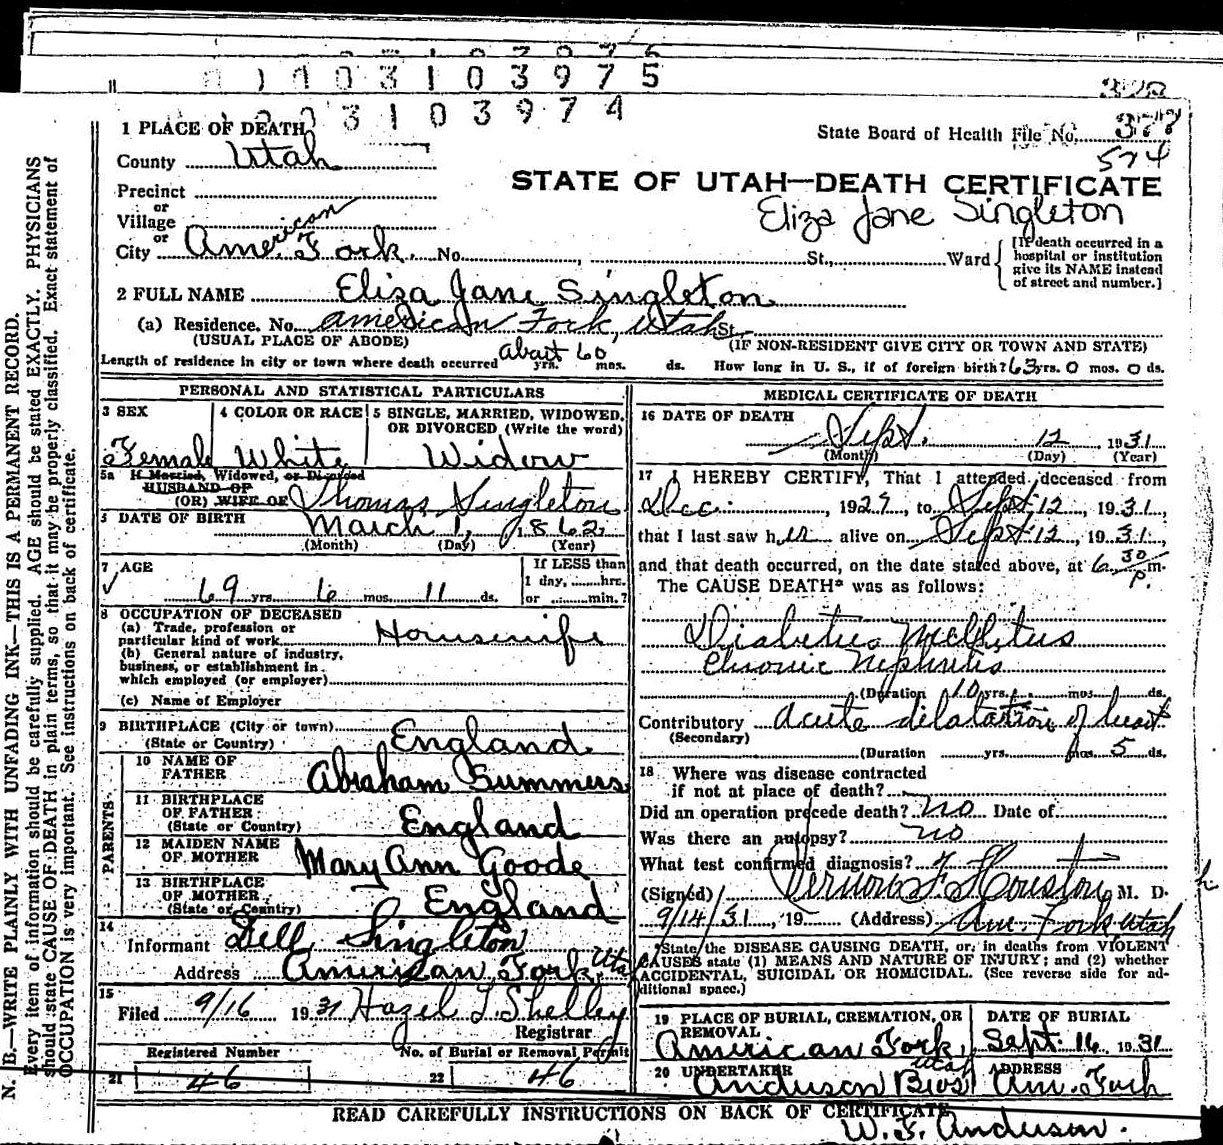 0 3 1 0 3 9 7 5
3 1 0 3 9 7 4
1 PLACE OF DEATH
County Utah
Precinct
or
Village
or
City American Fork. No. St., Ward
[If death occurred in a hospital or institution give its NAME instead of street and number.]
State Board of Health File No. 377
574
STATE OF UTAH—DEATH CERTIFICATE
Eliza Jane Singleton
2 FULL NAME Eliza Jane Singleton
(a) Residence. No. American Fork, Utah St.
(USUAL PLACE OF ABODE) (IF NON-RESIDENT GIVE CITY OR TOWN AND STATE)
Length of residence in city or town where death occurred about 60 yrs. mos. ds. How long in U. S., if of foreign birth? 63 yrs. 0 mos. 0 ds.
PERSONAL AND STATISTICAL PARTICULARS
3 SEX
Female
4 COLOR OR RACE
White
5 SINGLE, MARRIED, WIDOWED, OR DIVORCED (Write the word)
Widow
5a If Married, Widowed, or Divorced
HUSBAND OF
(OR) WIFE OF Thomas Singleton
5 DATE OF BIRTH March 1, 1862
(Month) (Day) (Year)
7 AGE
69 yrs. 6 mos. 11 ds.
If LESS than
1 day, hrs.
or min.?
8 OCCUPATION OF DECEASED
(a) Trade, profession or
particular kind of work Housewife
(b) General nature of industry,
business, or establishment in
which employed (or employer)
(c) Name of Employer
9 BIRTHPLACE (City or town)
(State or Country) England
PARENTS
10 NAME OF
FATHER Abraham Summers
11 BIRTHPLACE
OF FATHER
(State or Country) England
12 MAIDEN NAME
OF MOTHER Mary Ann Goode
13 BIRTHPLACE
OF MOTHER
(State or Country) England
14
Informant Dell Singleton
Address American Fork, Utah
15
Filed 9/16 1931 Hazel T. Shelley
Registrar
Registered Number
21 46
No. of Burial or Removal Permit
22 46
MEDICAL CERTIFICATE OF DEATH
16 DATE OF DEATH
Sept. 12 1931
(Month) (Day) (Year)
17 I HEREBY CERTIFY, That I attended deceased from
Dec. , 1929, to Sept 12, 1931,
that I last saw her alive on Sept 12, 1931,
and that death occurred, on the date stated above, at 6 30 P. m.
The CAUSE DEATH* was as follows:
Diabetes Mellitus
Chronic Nephritis
(Duration 10 yrs. mos. ds.
Contributory Acute dilatation of heart
(Secondary)
(Duration yrs. mos. 5 ds.
18 Where was disease contracted
if not at place of death?
Did an operation precede death? no Date of
Was there an autopsy? no
What test confirmed diagnosis?
(Signed) Vernon F. Houston M. D.
9/14/31, 19 (Address) Am. Fork, Utah
*State the DISEASE CAUSING DEATH, or, in deaths from VIOLENT
CAUSES state (1) MEANS AND NATURE OF INJURY; and (2) whether
ACCIDENTAL, SUICIDAL OR HOMICIDAL. (See reverse side for ad-
ditional space.)
19 PLACE OF BURIAL, CREMATION, OR
REMOVAL
American Fork, Utah
DATE OF BURIAL
Sept. 16 1931
20 UNDERTAKER
Anderson Bros
ADDRESS
Am. Fork
READ CAREFULLY INSTRUCTIONS ON BACK OF CERTIFICATE
W. F. Anderson.
N. B.—WRITE PLAINLY WITH UNFADING INK—THIS IS A PERMANENT RECORD.
Every item of information should be carefully supplied. AGE should be stated EXACTLY. PHYSICIANS
should state CAUSE OF DEATH in plain terms, so that it may be properly classified. Exact statement of
OCCUPATION is very important. See instructions on back of certificate.